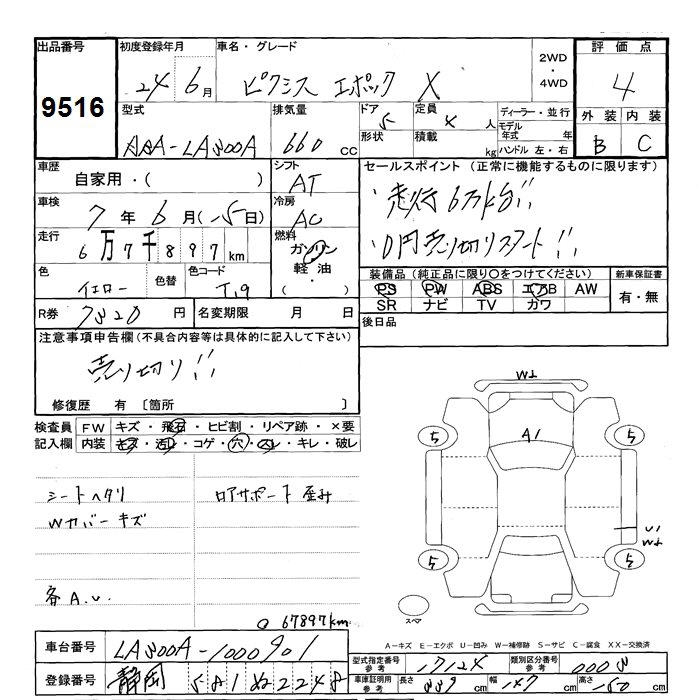 出品番号 初度登録年月 車名・グレード 2WD・4WD 評価点
9516 24 6月 ピクシス エポック X 4
型式 排気量 ドア 5 定員 4 人 ディーラー・並行 外装 内装
形状 積載 kg モデル年式 年 ハンドル 左・右
-LA300A 660 cc B C
車歴 自家用・( ) シフト AT セールスポイント (正常に機能するものに限ります)
車検 7年 6月(-5日) 冷房 AC 走行6万k台!!
走行 6万7千897km 燃料 ガソリン・軽油・( ) 0円売切りスタート!!
色 イエロー 色替 色コード T19
装備品(純正品に限り○をつけてください) 新車保証書
PS PW ABS エアB AW 有・無
SR ナビ TV カワ
R券 7820円 名変期限 月 日 後日品
注意事項申告欄(不具合内容等は具体的に記入して下さい)
売り切り!!
修復歴 有 〔箇所 〕
検査員 FW キズ・飛石・ヒビ割・リペア跡・×要
記入欄 内装 キズ・汚レ・コゲ・穴・ハレ・キレ・破レ
シートヘタリ ロアサポート歪み
Wカバーキズ
各A.U.
67897km
W2
A1
5 5
U1
W2
5 5
スペア
A-キズ E-エクボ U-凹み W-補修跡 S-サビ C-腐食 XX-交換済
車台番号 LA300A-1000901
型式指定番号 参考 17124 類別区分番号 参考 0008
登録番号 静岡 581 ぬ2248
車庫証明用 参考 長さ 339cm 幅 147cm 高さ 150cm